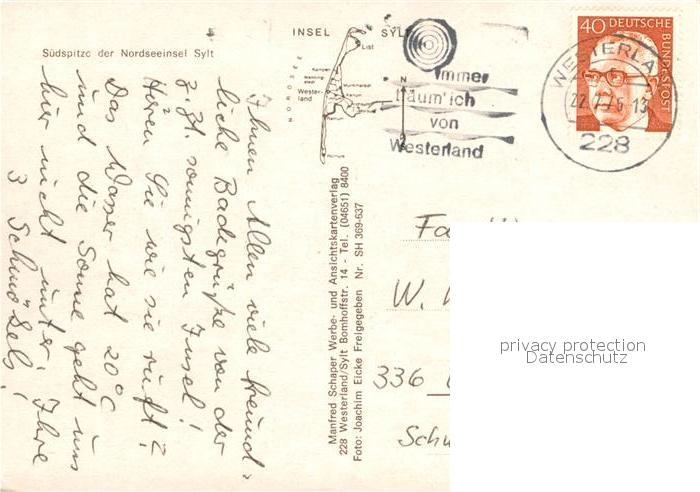 Südspitze der Nordseeinsel Sylt
INSEL SYLT
NORDSEE
List
Kampen
Wester-
land
N
Immer
träum' ich
von
Westerland
40 DEUTSCHE
BUNDESPOST
WESTERLA
22.7.76-13
228
Ihnen Allen viele freund-
liche Badegrüße von der
z. Zt. sonnigsten Insel!
Hören Sie wie sie ruft?
Das Wasser hat 20°C
und die Sonne geht uns
hier nicht unter. Ihre
3
Manfred Schaper Werbe- und Ansichtskartenverlag
228 Westerland/Sylt Bomhoffstr. 14 - Tel. (04651) 8400
Foto: Joachim Eicke Freigegeben Nr. SH 369-637
Fa
W.
336
Schu
privacy protection
Datenschutz